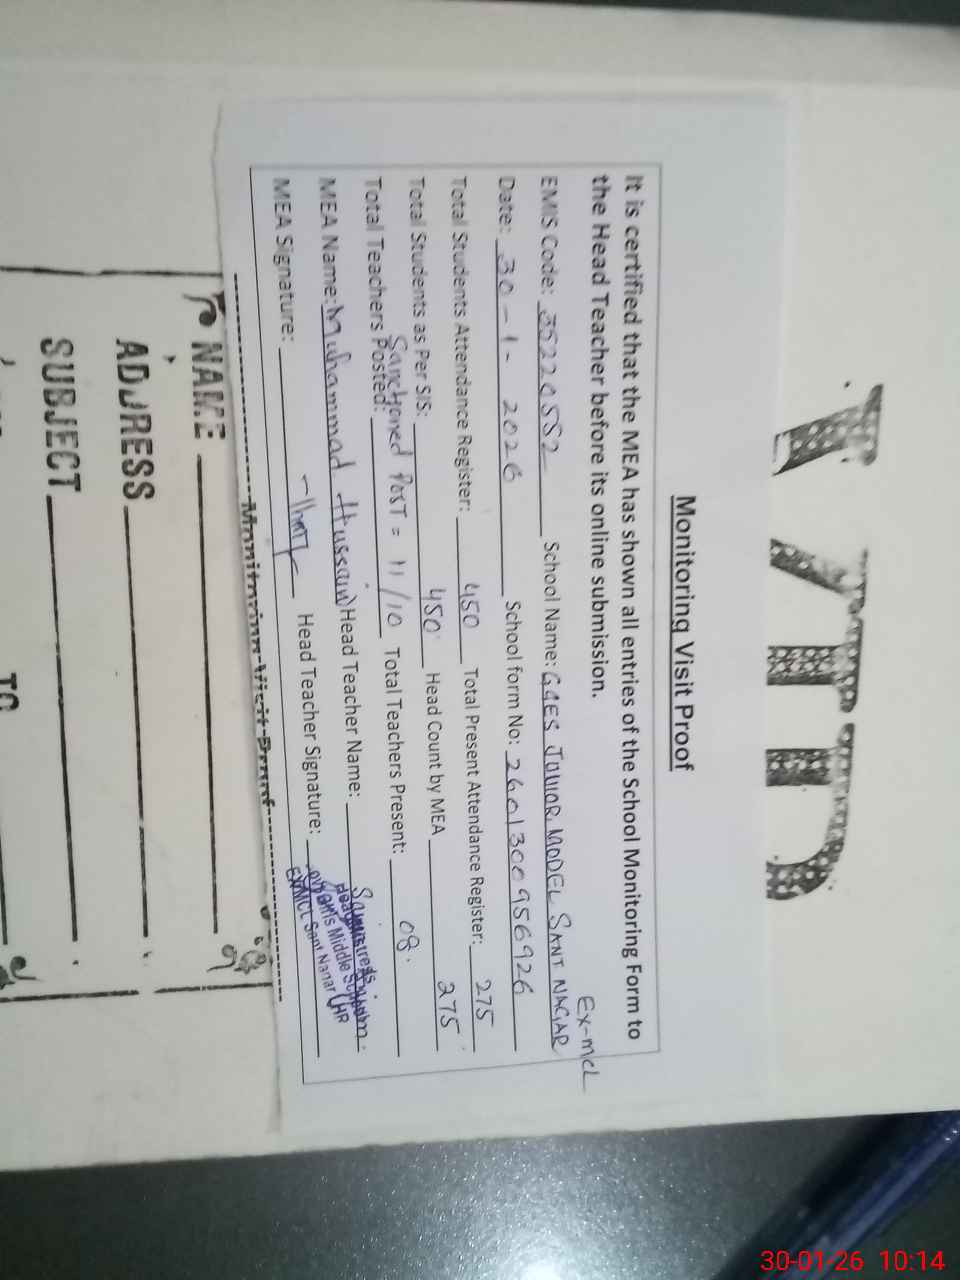 Monitoring Visit Proof
It is certified that the MEA has shown all entries of the School Monitoring Form to
the Head Teacher before its online submission.
Ex-MCL
EMIS Code: 35220552 School Name: GGES JUNIOR MODEL SANT NAGAR
Date: 30-1-2026 School form No: 2601300956926
Total Students Attendance Register: 450 Total Present Attendance Register: 275
Total Students as Per SIS: 450 Head Count by MEA 275
Sanctioned Post = 11/10
Total Teachers Posted: Total Teachers Present: 08.
MEA Name: Muhammad Hussain Head Teacher Name:
MEA Signature: Head Teacher Signature:
Headmistress
Middle
EX-MCL Sant Nanar LHR
Monitoring Visit Proof
NAME
ADDRESS
SUBJECT
TO
30-01-26 10:14